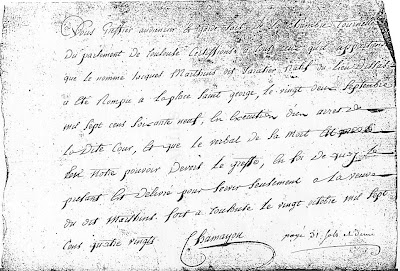 Nous Greffier audiencier et garde sacs de la Chambre Tournelle
du parlement de toulouse Certiffions à tous ceux quil appartiendra
que le nommé Jacques Marthins dit Lavation natif du lieu
a eté Rompu a la place saint george, le vingt deux septembre
mil sept cens soixante neuf, En Execution d'un arret de
la Dite Cour, Et que le verbal de la mort Est
notre pouvoir Devers le greffe, En foi de quoy le
present Est Delivré pour servir seulement a la veuve
du dit Marthins. fait a Toulouse le vingt octobre mil sept
Cens quatre vingts
Damayou
payé 31 sols